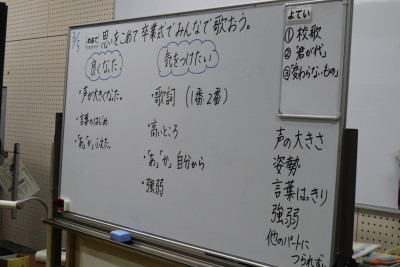 3/5 めあて 思いをこめて 卒業式でみんなで歌おう。
良くなった
・声が大きくなった。
・言葉のはじめ
・「あ」「か」ふえた。
気をつけたい
・歌詞 (1番・2番)
・高いところ
・「あ」「か」自分から
・強弱
よてい
① 校歌
② 君が代
③「変わらないもの」
声の大きさ
姿勢
言葉はっきり
強弱
他のパートに
つられず